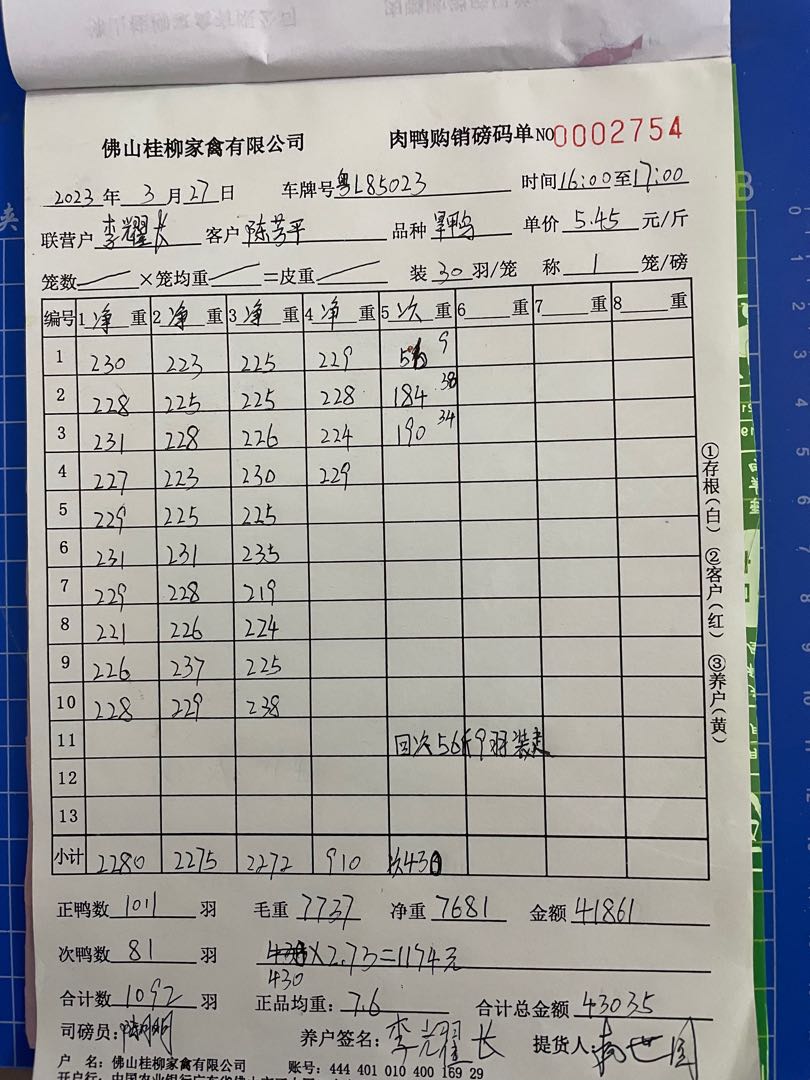 佛山桂柳家禽有限公司 肉鸭购销磅码单 NO 0002754
2023年 3月27日 车牌号粤L85023 时间16:00至17:00
联营户 李耀长 客户 陈芳平 品种 单价 5.45 元/斤
笼数 ×笼均重 =皮重 装 30 羽/笼 称 1 笼/磅
编号 1 净 重 2 净 重 3 净 重 4 净 重 5 次 重 6 重 7 重 8 重
1 230 223 225 229 56 9
2 228 225 225 228 184 38
3 231 228 226 224 190 34
4 227 223 230 229
5 229 225 225
6 231 231 235
7 229 228 219
8 221 226 224
9 226 237 225
10 228 229 238
11 回次56斤9羽装走
12
13
小计 2280 2275 2272 910 次430
正鸭数 1011 羽 毛重 7737 净重 7681 金额 41861
次鸭数 81 羽 ×2.73=1174元
430
合计数 1092 羽 正品均重: 7.6 合计总金额 43035
司磅员: 养户签名: 李耀长 提货人:
户 名: 佛山桂柳家禽有限公司 账号: 444 401 010 400 169 29
①存根(白) ②客户(红) ③养户(黄)